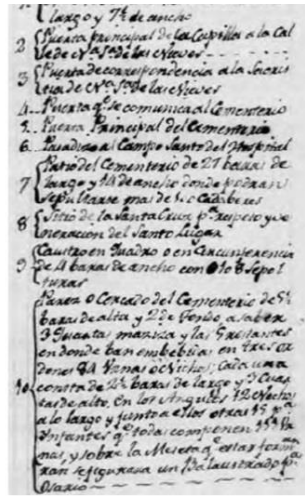 largo y 7½ de ancho
2 Puerta principal de la Capilla a la Cal
le de Nª Sª de las Nieves
3 Puerta de correspondencia a la Sacris
tia de Nª Sª de las Nieves
4 Puerta qe se comunica al Cementerio
5 Puerta Principal del Cementerio
6 Paradizo al Campo Santo del Hospital
7 Patio del Cementerio de 27 baras de
largo y 14 de ancho donde podran
sepultarse mas de Cadaberes
8 Sitio de la Santa Cruz pª Respeto y ve
neracion del Santo Lugar
9 Claustro en Quadro o en Circunferencia
de 4 baras de ancho con Sepol
turas
10 Parez o Cercado del Cementerio de 5½
baras de alta y 2 de fondo a saber
3 Quartas maziza y las 5 restantes
en donde ban embebidas en tres or
denes 84 Vanas o Nichos, Cada una
consta de 2½ baras de largo y 3 Cuar
tas de alto, en los Angulos 12 Nichos
a lo largo y junto a ellos otras 15 pª
Infantes qe todas componen
nas, y sobre la Meseta qe estas forma
ran se figurava un
Osario